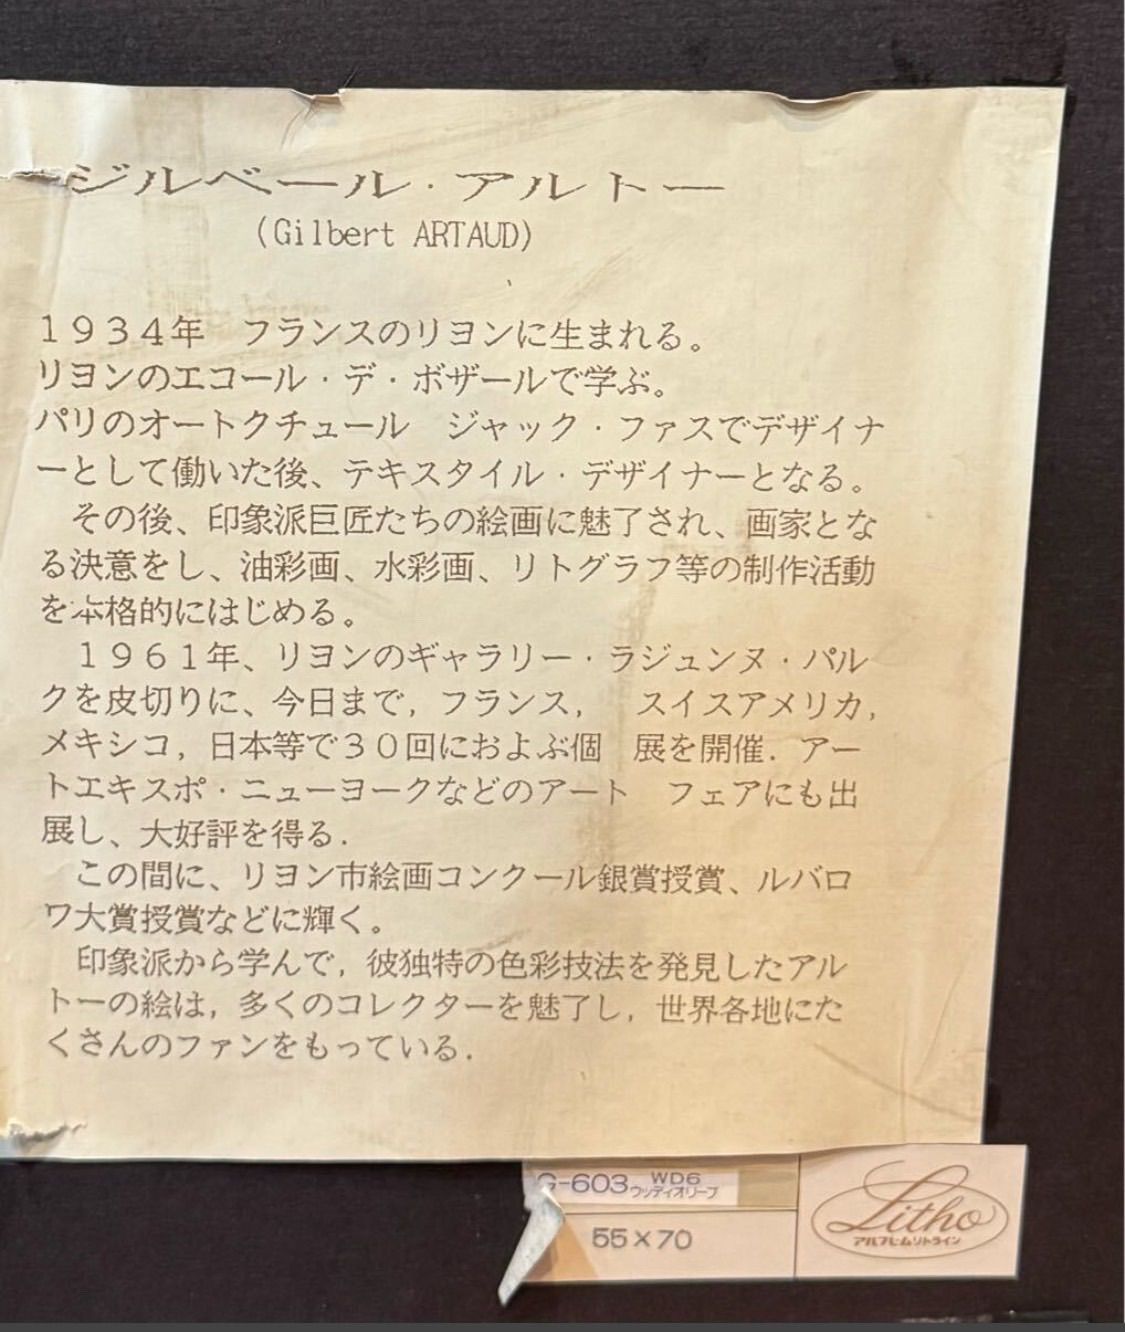 ジルベール・アルトー
(Gilbert ARTAUD)
１９３４年　フランスのリヨンに生まれる。
リヨンのエコール・デ・ボザールで学ぶ。
パリのオートクチュール　ジャック・ファスでデザイナ
ーとして働いた後、テキスタイル・デザイナーとなる。
　その後、印象派巨匠たちの絵画に魅了され、画家とな
る決意をし、油彩画、水彩画、リトグラフ等の制作活動
を本格的にはじめる。
　１９６１年、リヨンのギャラリー・ラジュンヌ・パル
クを皮切りに、今日まで，フランス，　スイスアメリカ，
メキシコ，日本等で３０回におよぶ個　展を開催．アー
トエキスポ・ニューヨークなどのアート　フェアにも出
展し、大好評を得る．
　この間に、リヨン市絵画コンクール銀賞授賞、ルバロ
ワ大賞授賞などに輝く。
　印象派から学んで，彼独特の色彩技法を発見したアル
トーの絵は，多くのコレクターを魅了し，世界各地にた
くさんのファンをもっている．
G-603 WD6
ウッディオリーブ
55×70
Litho
アルフレムリトライン